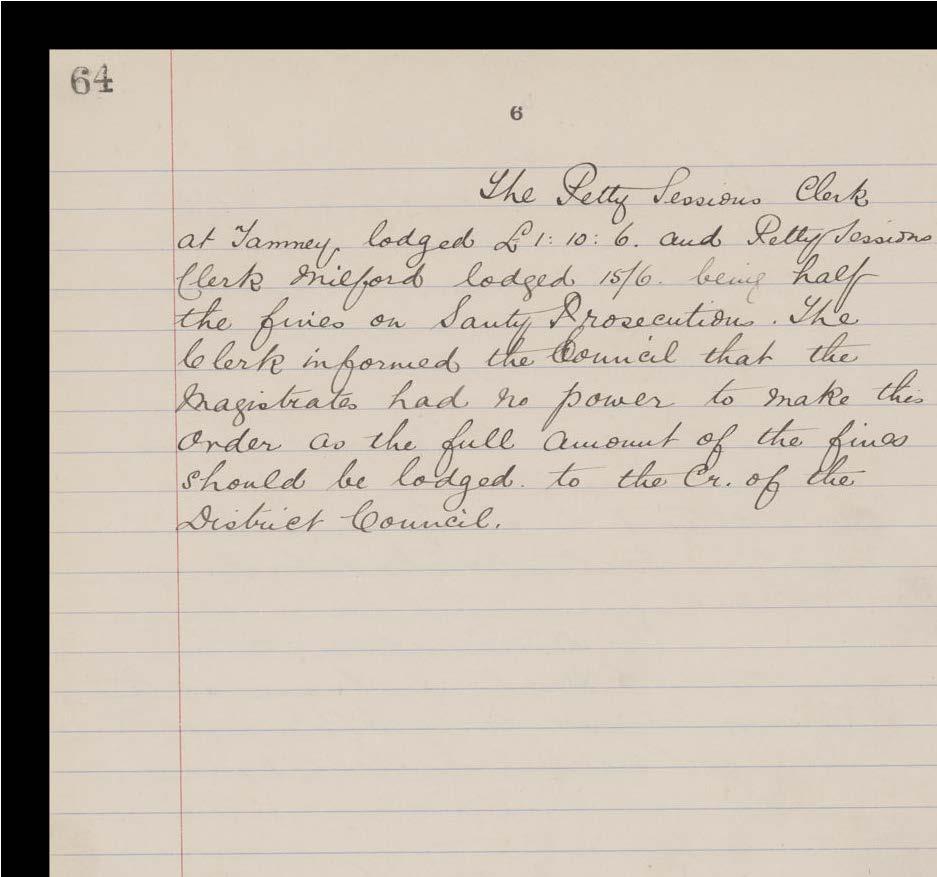 64
6
The Petty Sessions Clerk
at Tamney, lodged £1:10:6. and Petty Sessions
Clerk Milford lodged 15/6. being half
the fines on Santy Prosecutions. The
Clerk informed the Council that the
Magistrates had no power to make this
Order as the full amount of the fines
should be lodged. to the Cr. of the
District Council.